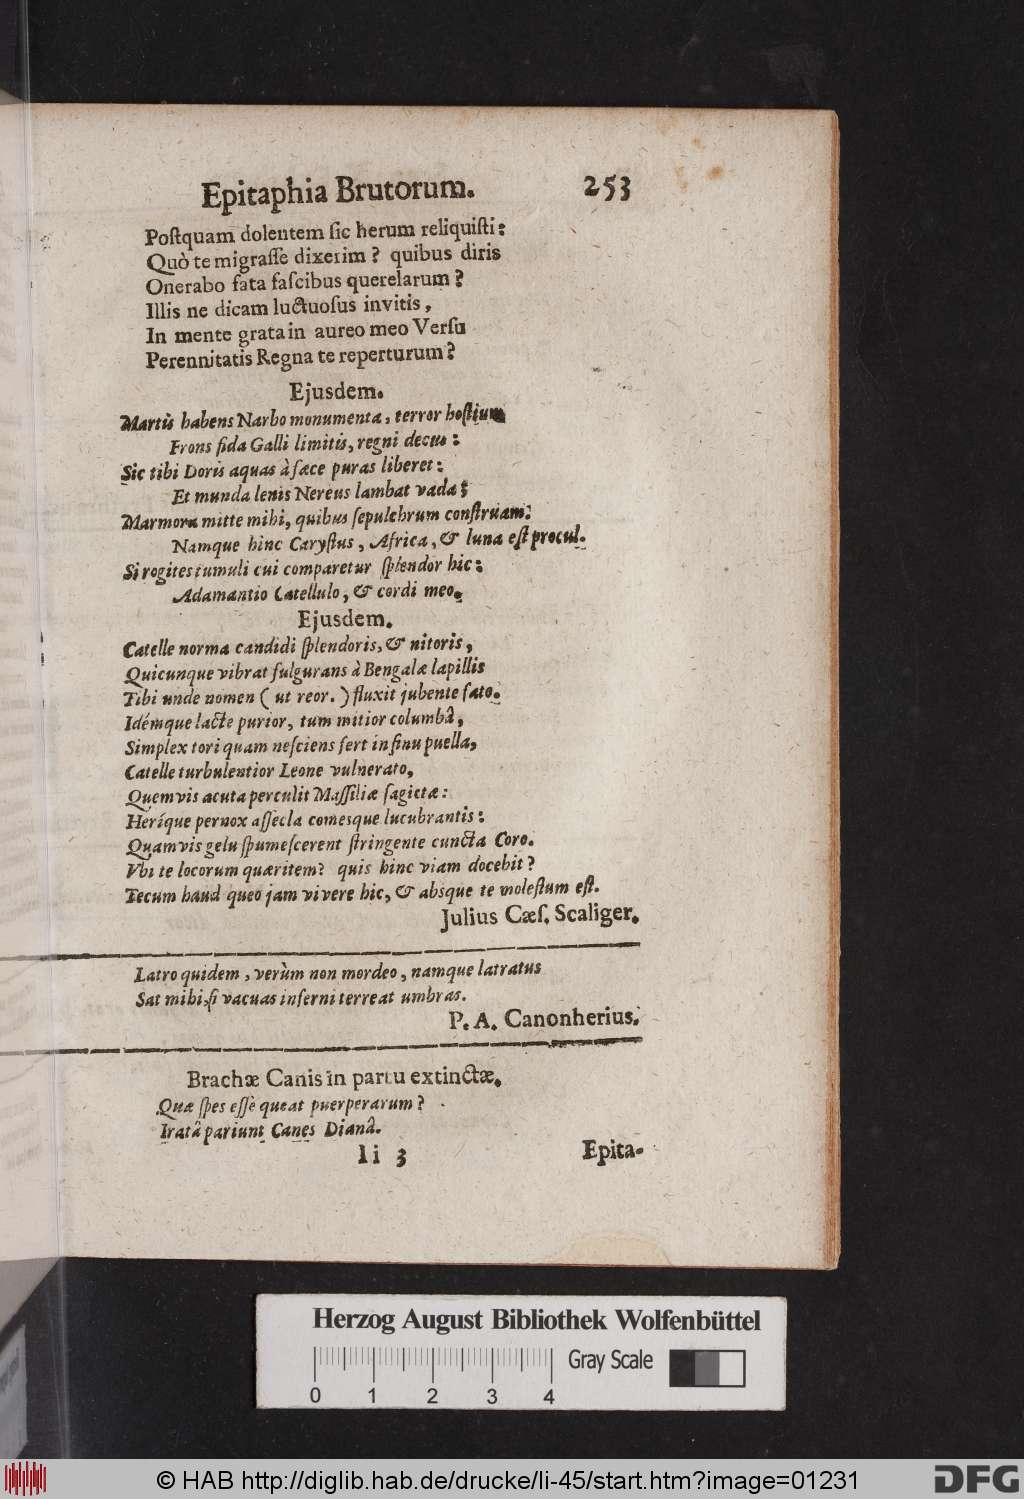 Epitaphia Brutorum. 253
Poſtquam dolentem ſic herum reliquiſti:
Quò te migraſſe dixerim? quibus diris
Onerabo fata faſcibus querelarum?
Illis ne dicam luctuoſus invitis,
In mente grata in aureo meo Verſu
Perennitatis Regna te reperturum?
Ejusdem.
Martùs habens Narbo monumenta, terror hoſtium
Frons fida Galli limitis, regni decus:
Sic tibi Doris aquas à fæce puras liberet:
Et munda lenis Nereus lambat vada:
Marmora mitte mihi, quibus ſepulchrum conſtruam:
Namque hinc Caryſtus, Africa, & luna eſt procul.
Si rogites tumuli cui comparetur ſplendor hic:
Adamantio Catellulo, & cordi meo.
Ejusdem.
Catelle norma candidi ſplendoris, & nitoris,
Quicunque vibrat fulgurans à Bengalæ lapillis
Tibi unde nomen (ut reor.) fluxit jubente fato.
Idémque lacte purior, tum mitior columbâ,
Simplex tori quam neſciens fert in ſinu puella,
Catelle turbulentior Leone vulnerato,
Quemvis acuta perculit Maſſiliæ ſagictæ:
Heríque pernox aſſecla comesque lucubrantis:
Quamvis gelu ſpumeſcerent ſtringente cuncta Coro.
Vbi te locorum quæritem? quis hinc viam docebit?
Tecum haud queo jam vivere hic, & absque te moleſtum eſt.
Julius Cæſ. Scaliger.
Latro quidem, verùm non mordeo, namque latratus
Sat mihi, ſi vacuas inferni terreat umbras.
P. A. Canonherius.
Brachæ Canis in partu extinctæ.
Quæ ſpes eſſe queat puerperarum?
Iratâ pariunt Canes Dianâ.
Ii 3 Epita-
Herzog August Bibliothek Wolfenbüttel
Gray Scale
0 1 2 3 4
© HAB http://diglib.hab.de/drucke/li-45/start.htm?image=01231
DFG